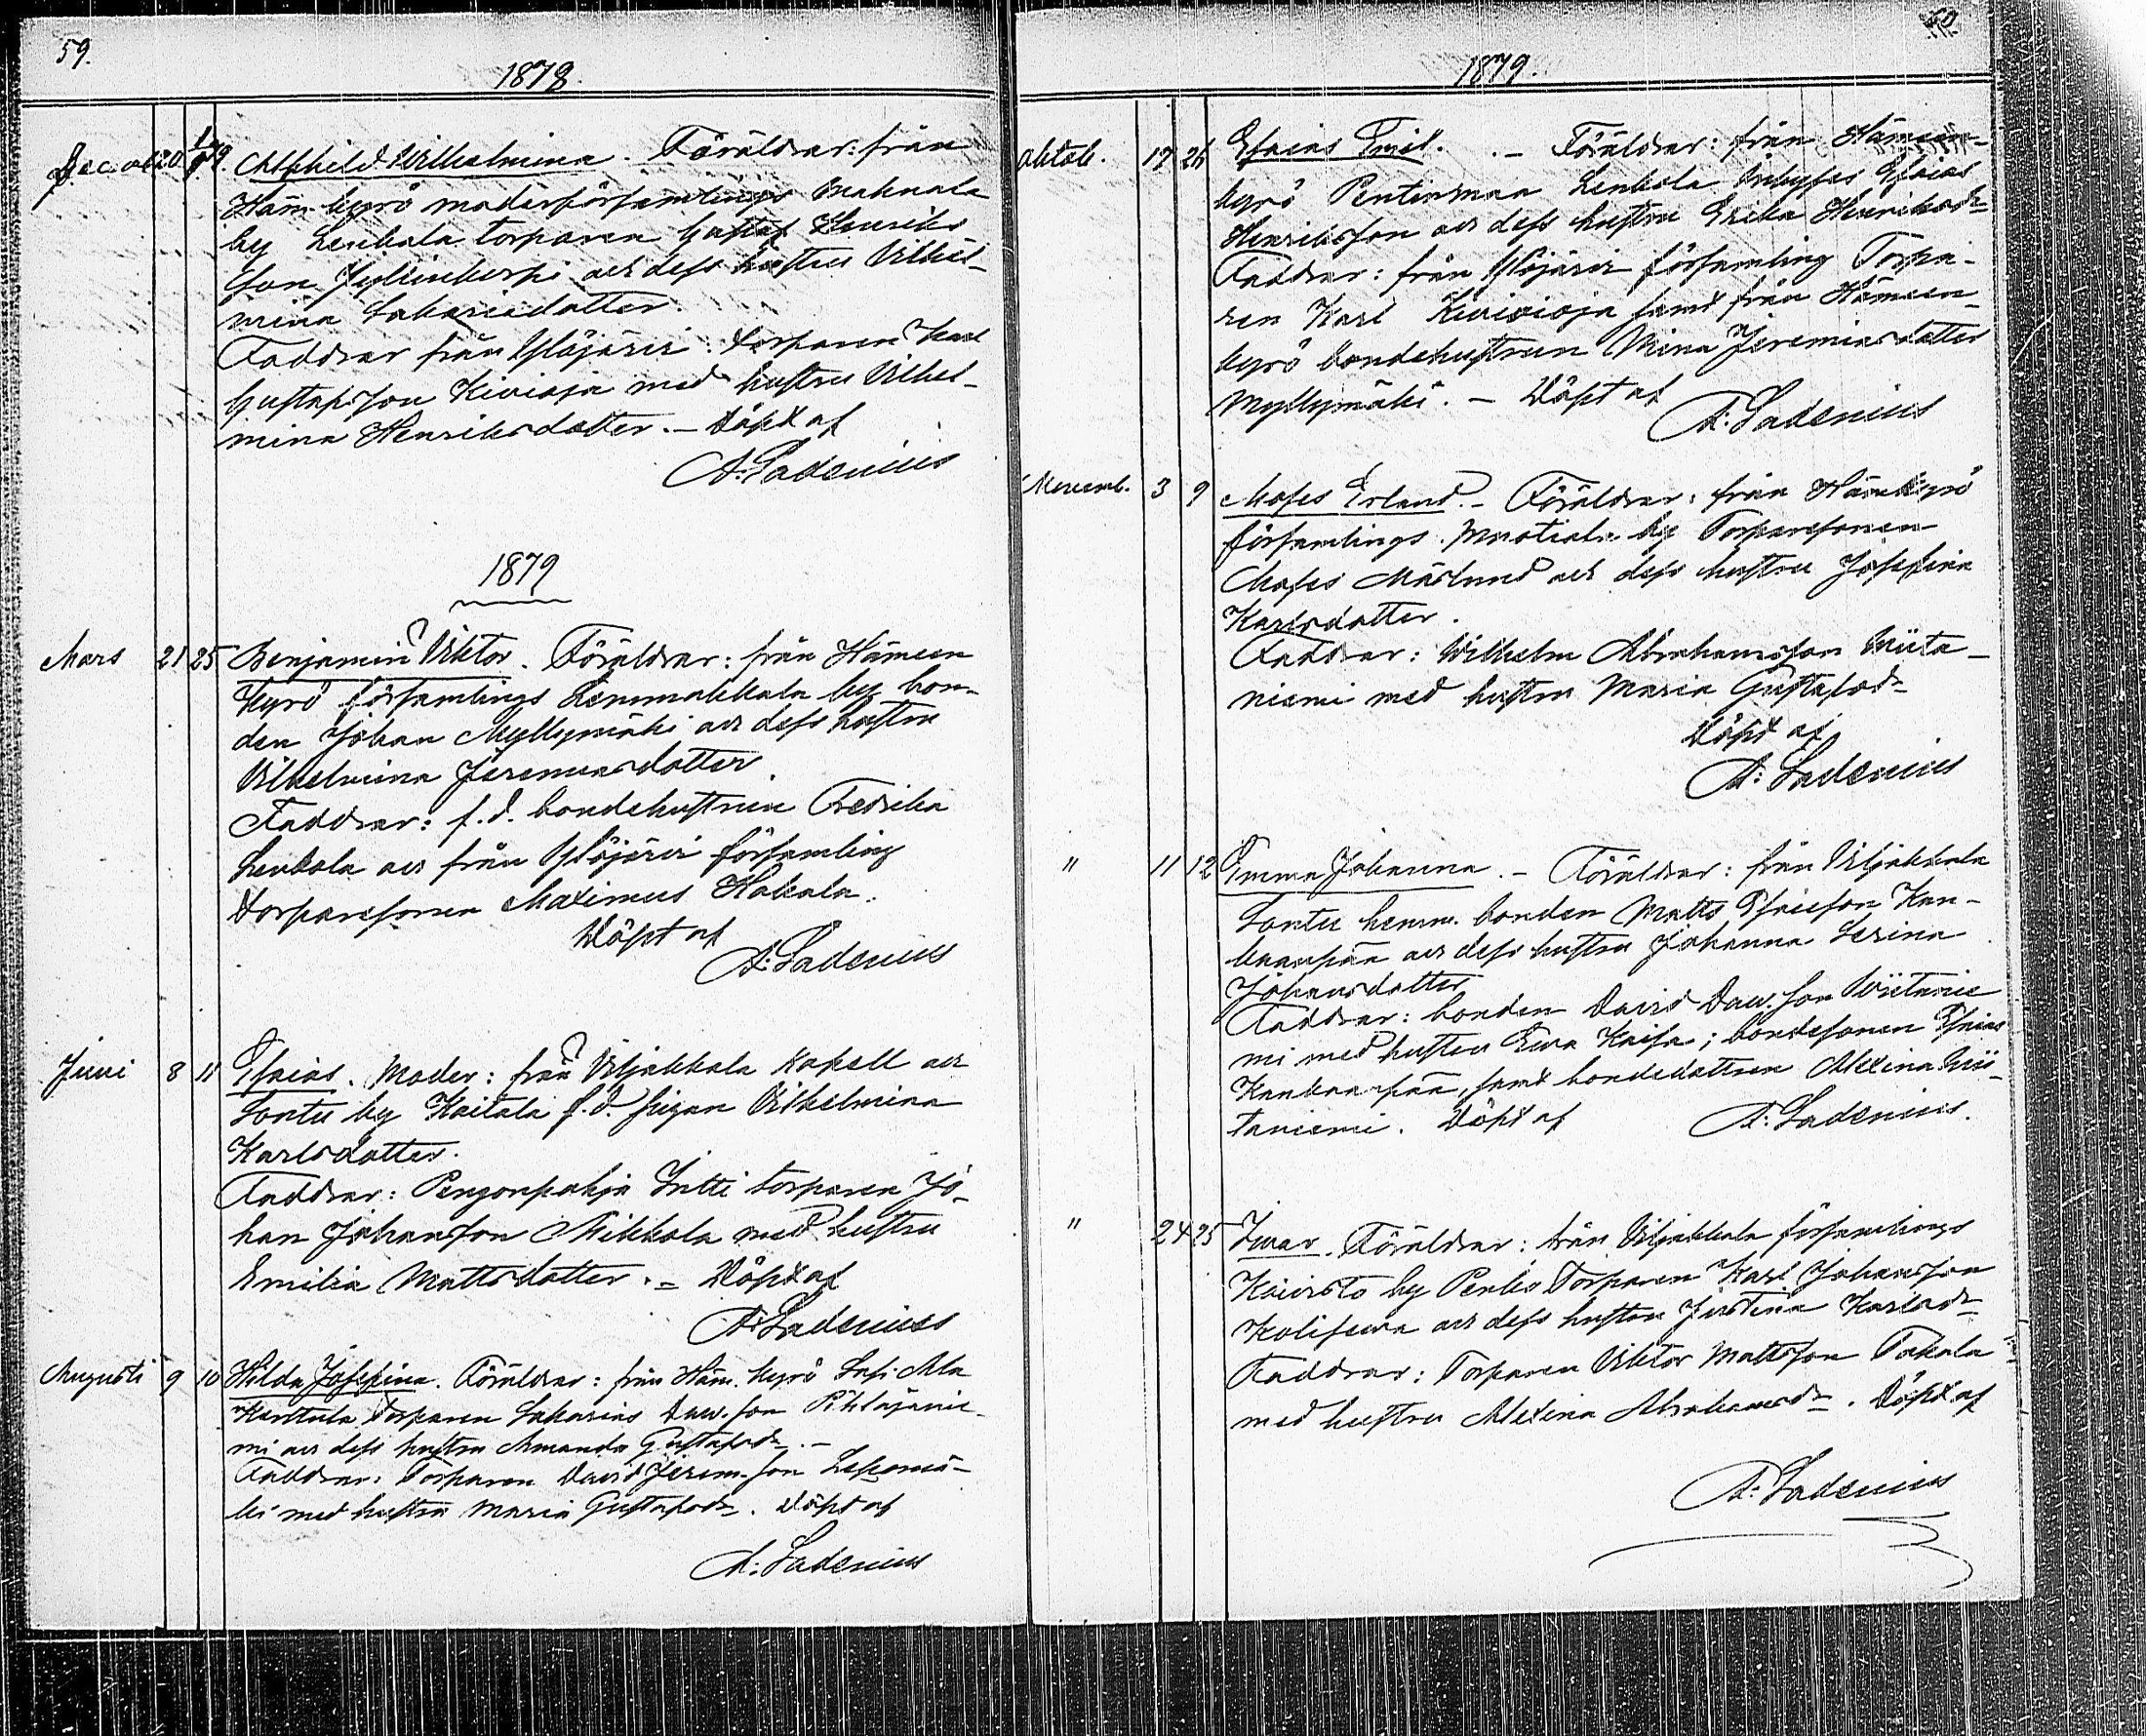 59.
1878.
Decemb 20 1/1 79. Alfhild Wilhelmina. Föräldrar: från
Häm. kyrö moderförsamlings Mahnala
by Leukala torparen Gustaf Henriks
son Jyllinkorpi och dess hustru Vilhel-
mina Sakariedatter.
Faddrar från Ylöjärvi: torparen Karl
Gustafsson Kivioja med hustru Vilhel-
mina Henriksdatter. – Döpt af
A: Ladenius
1879
Mars 21 25 Benjamin Viktor. Föräldrar: från Hämeen
Kyrö församlings Lemmakkala by bon-
den Johan Myllymäki och dess hustru
Vilhelmina Jeremiasdatter.
Faddrar: f.d. bondehustrun Fredrika
Leukala och från Ylöjärvi församling
torparesonen Maximus Hakala.
Döpt af
A: Ladenius
Juni 8 11 Esaias. Moder: från Viljakkala Kapell och
Sontu by Kaitala f.d. pigan Vilhelmina
Karlsdatter.
Faddrar: Pengonpohja Intti torparen Jo-
han Johansson Mikkola med hustru
Emilia Mattsdatter. – Döpt af
A: Ladenius
Augusti 9 10 Hilda Josefina. Föräldrar: från Häm. kyrö Sasi Ala
Karttula torparen Sakarias Dav. son Pihlajanie-
mi och dess hustru Amanda Gustafsdr. –
Faddrar: Torparen David Jerem. son Leponiä-
ki med hustru Maria Gustafsdr. Döpt af
A: Ladenius
60
1879.
Oktob. 17 26 Esaias Emil. – Föräldrar: från Hämeen-
kyrö Pentinmaa Leukola inhyses Esaias
Henriksson och dess hustru Erika Henriksdr.
Faddrar: från Ylöjärvi församling Torpa-
ren Karl Kivioja samt från Hämeen-
kyrö bondehustrun Mina Jeremiasdatter
Myllymäki. – Döpt af
A: Ladenius
Novemb. 3 9 Moses Erland. – Föräldrar: från Hämekyrö
församlings. by Torparesonen
Moses Märlund och dess hustru Josefina
Karlsdatter.
Faddrar: Wilhelm Abrahamsson Viita-
niemi med hustru Maria Gustafsdr.
Döpt af
A: Ladenius
" 11 12 Emma Johanna. – Föräldrar: från Viljakkala
Sontu hemm. bonden Matts Esaiesson Kan-
kaanpää och dess hustru Johanna Serina
Johansdatter
Faddrar: bonden David Dav. son Viitanie
mi med hustru Eva Kaisa; bondesonen Esaias
Kankaanpää, samt bondedottren Alexina Vii-
taniemi. Döpt af A: Ladenius.
" 24 25 Ivar. Föräldrar: från Viljakkala församlings
Kaivisto by Penho Torparen Karl Johansson
Kolisewa och dess hustru Justina Karlsdr.
Faddrar: Torparen Viktor Mattsson Takala
med hustru Alexina Abrahamsdr. Döpt af
A: Ladenius